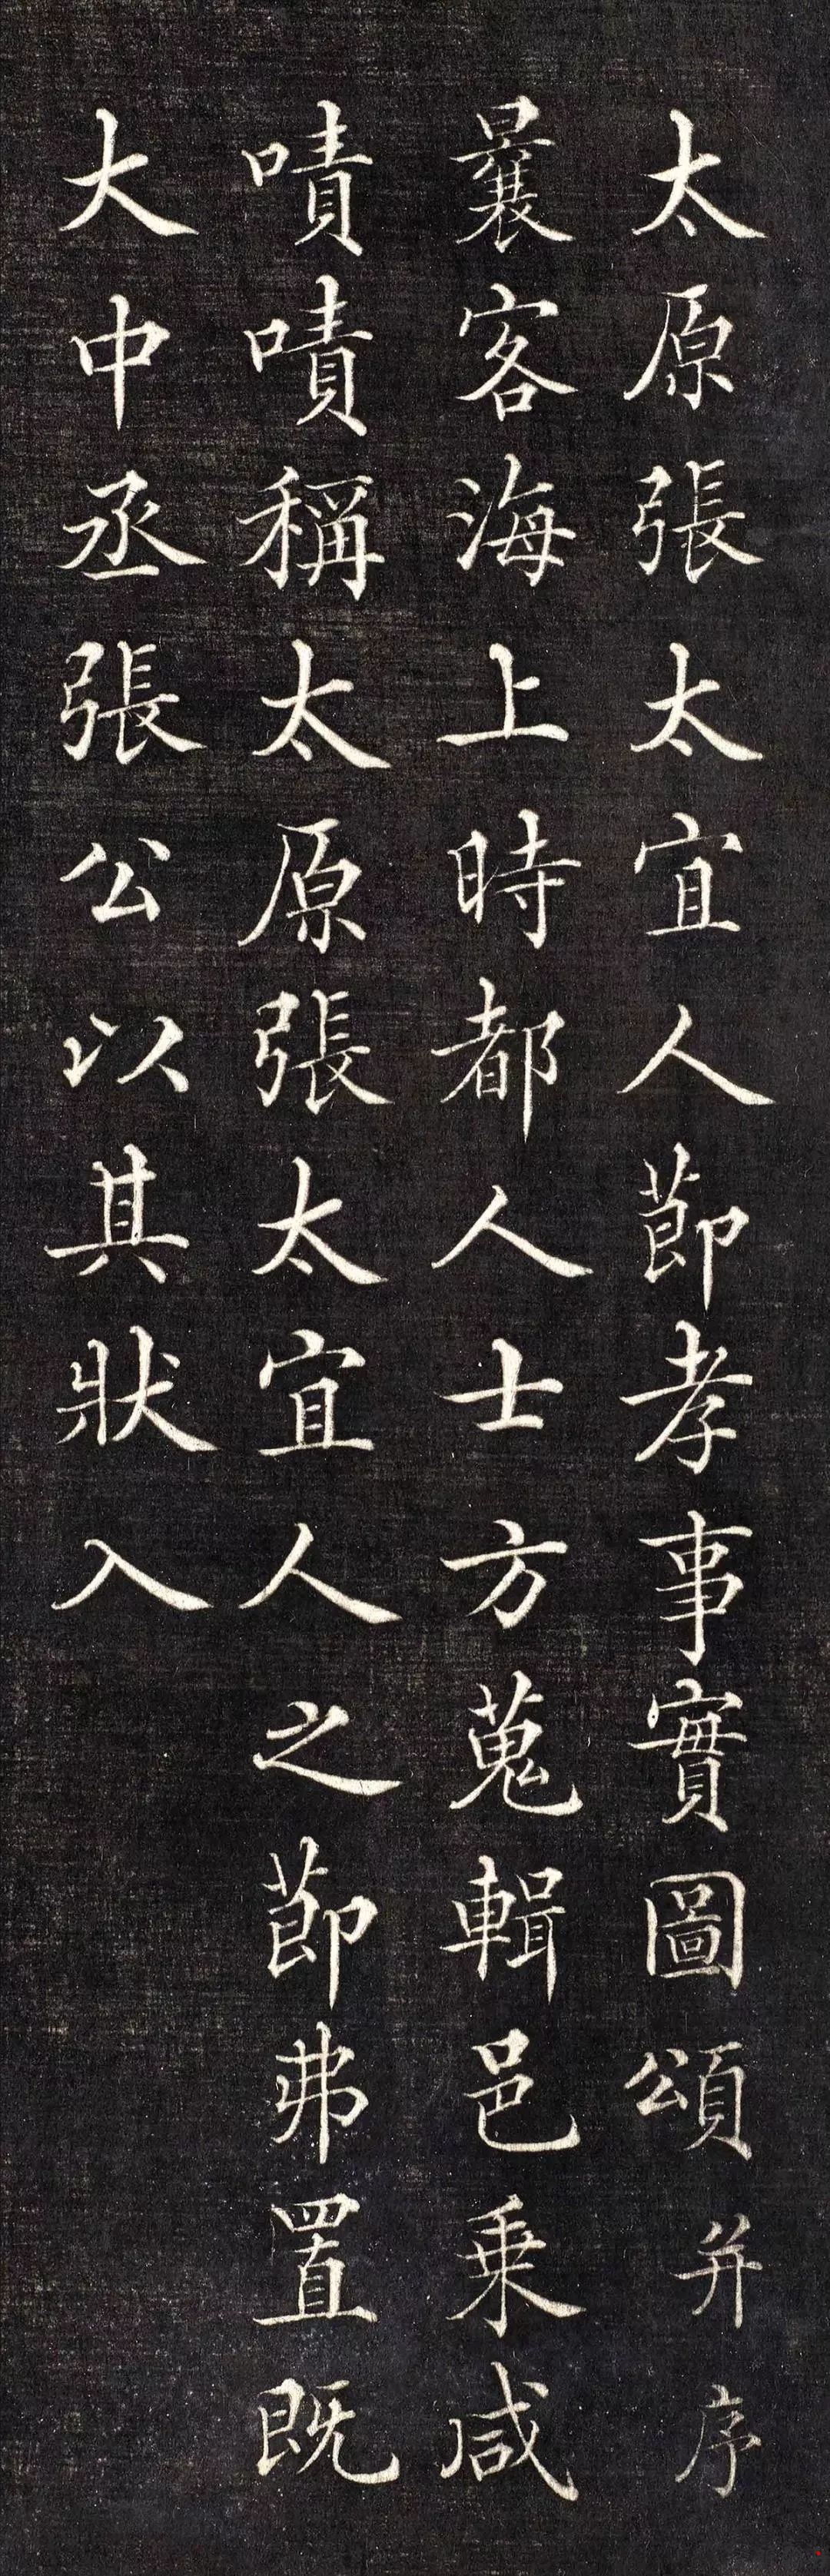 太原張太宜人莭孝事實圖頌并序
曩客海上時都人士方蒐輯邑乗咸
嘖嘖稱太原張太宜人之莭弗置既
大中丞張公以其狀入